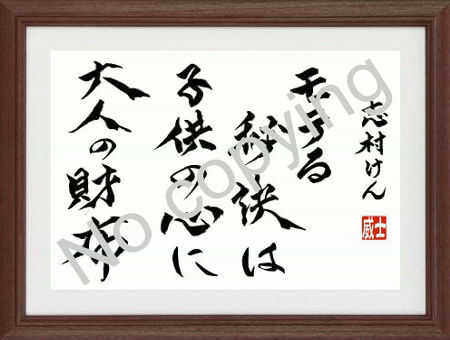 志村けん
威士
モテる
秘訣は
子供の心に
大人の財布
No copying